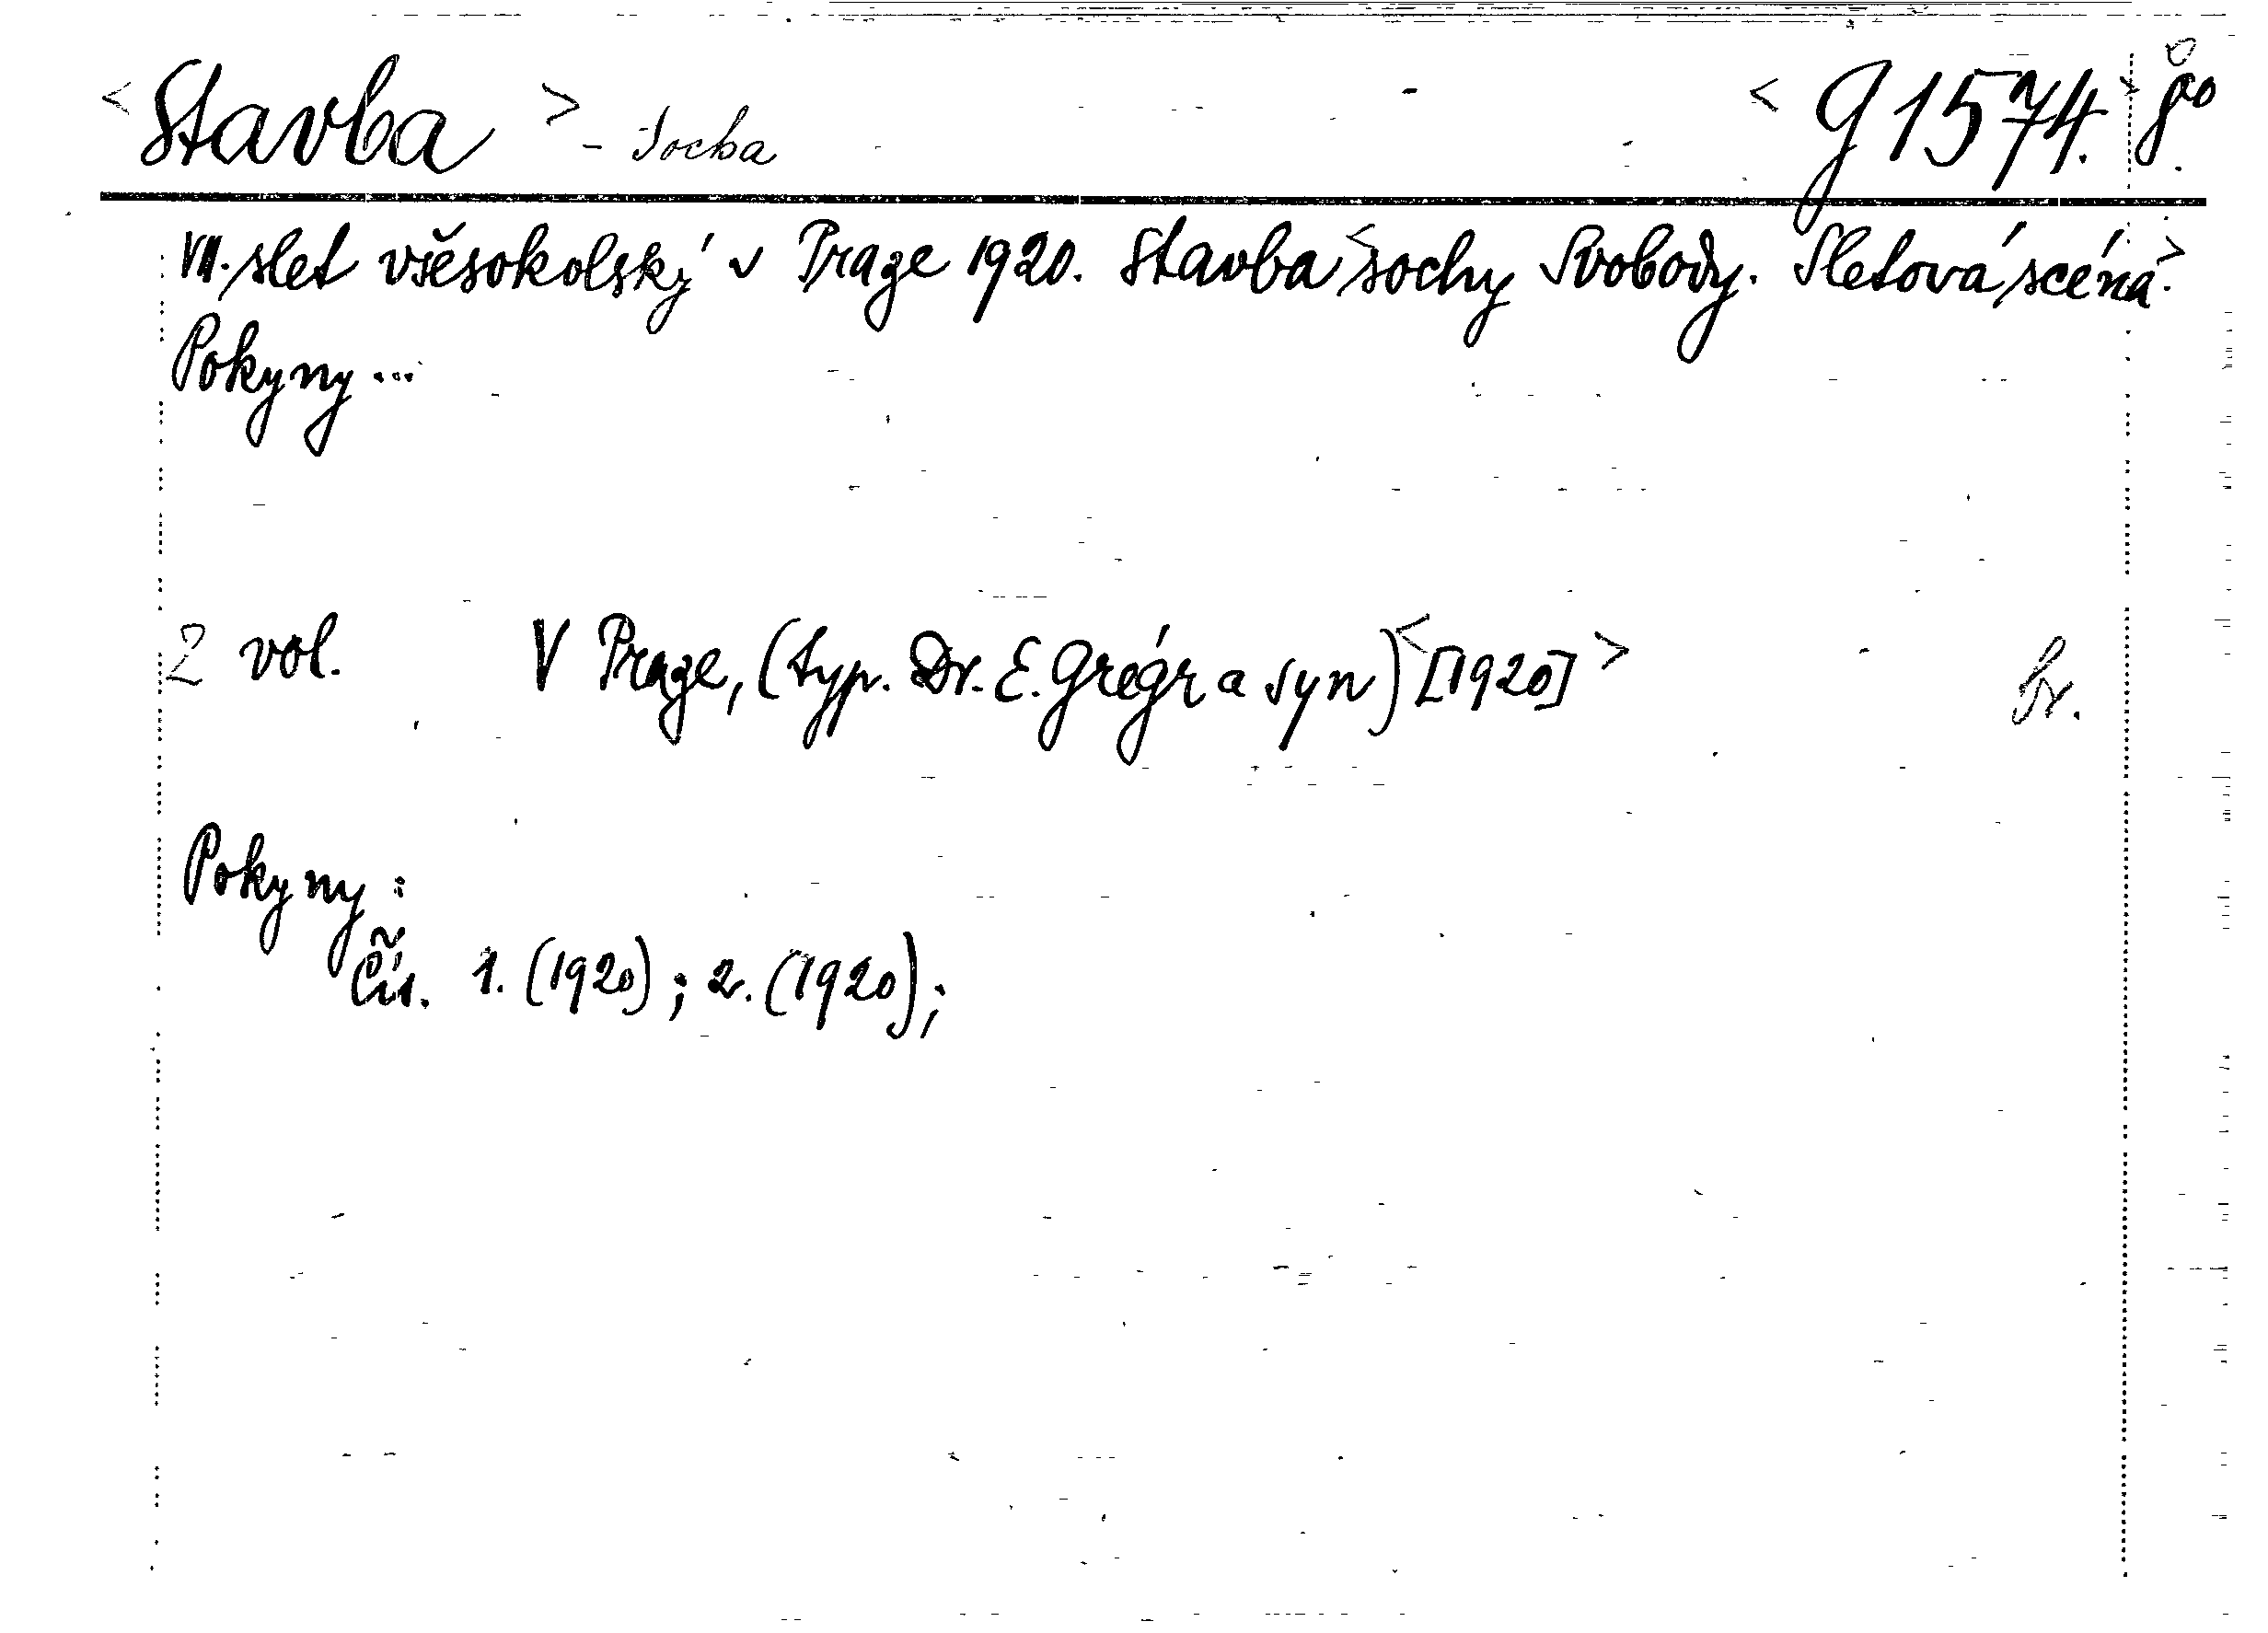 <Stavba> - Socha <G 1574.> 8°.
VII. slet všesokolský v Praze 1920. Stavba <sochy Svobody. Sletová scéna.>
Pokyny...
2 vol. V Praze, (typ. Dr. E. Grégr a syn) <[1920]> br.
Pokyny:
Čís. 1. (1920); 2. (1920);